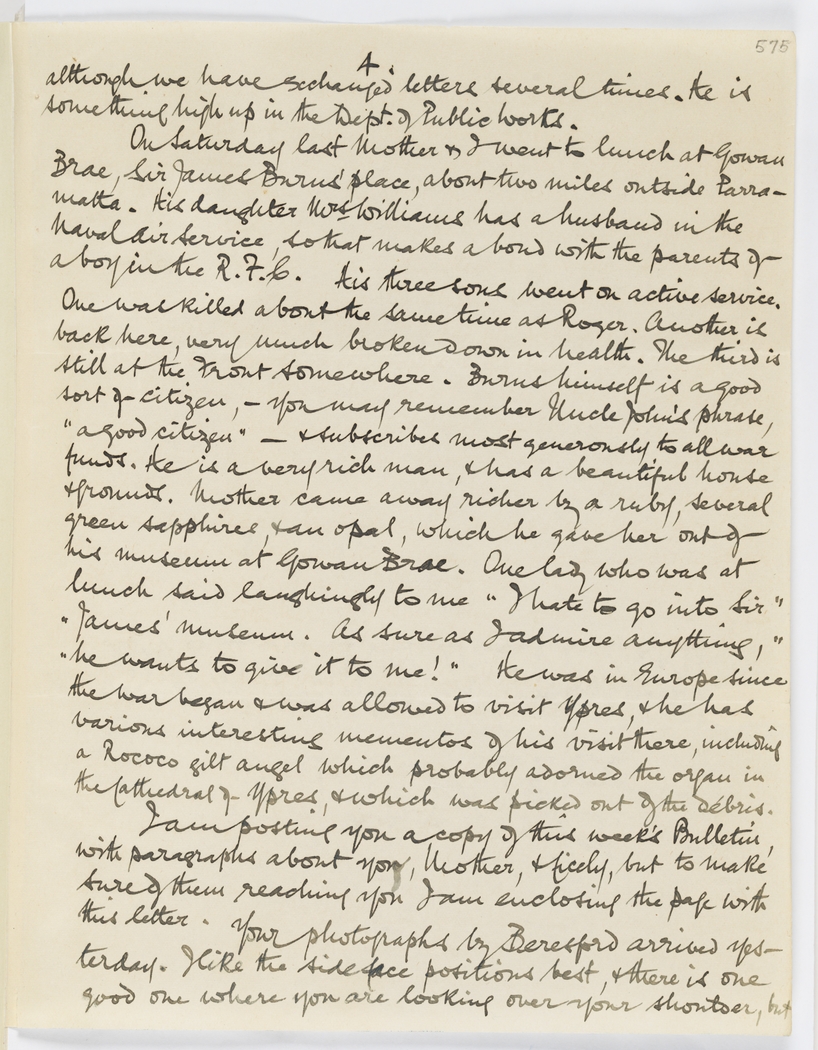 575
4.
although we have exchanged letters several times. He is
something high up in the Dept. of Public Works.
On Saturday last Mother & I went to lunch at Gowan
Brae, Sir James Burns' place, about two miles outside Parra-
matta. His daughter Mrs Williams has a husband in the
Naval Air Service, so that makes a bond with the parents of
a boy in the R.F.C. His three sons went on active service.
One was killed about the same time as Roger. Another is
back here, very much broken down in health. The third is
still at the Front somewhere. Burns himself is a good
sort of citizen, – you may remember Uncle John's phrase,
"a good citizen" – & subscribes most generously to all war
funds. He is a very rich man, & has a beautiful house
& grounds. Mother came away richer by a ruby, several
green sapphires, & an opal, which he gave her out of
his museum at Gowan Brae. One lady who was at
lunch said laughingly to me "I hate to go into Sir"
"James' museum. As sure as I admire anything,"
"he wants to give it to me!" He was in Europe since
the war began & was allowed to visit Ypres, & he has
various interesting mementos of his visit there, including
a Rococo gilt angel which probably adorned the organ in
the Cathedral of Ypres, & which was picked out of the débris.
I am posting you a copy of this week's Bulletin,
with paragraphs about you, Mother, & Cicely, but to make
sure of them reaching you I am enclosing the page with
this letter. Your photographs by Beresford arrived yes-
terday. I like the side face positions best, & there is one
good one where you are looking over your shoulder, but